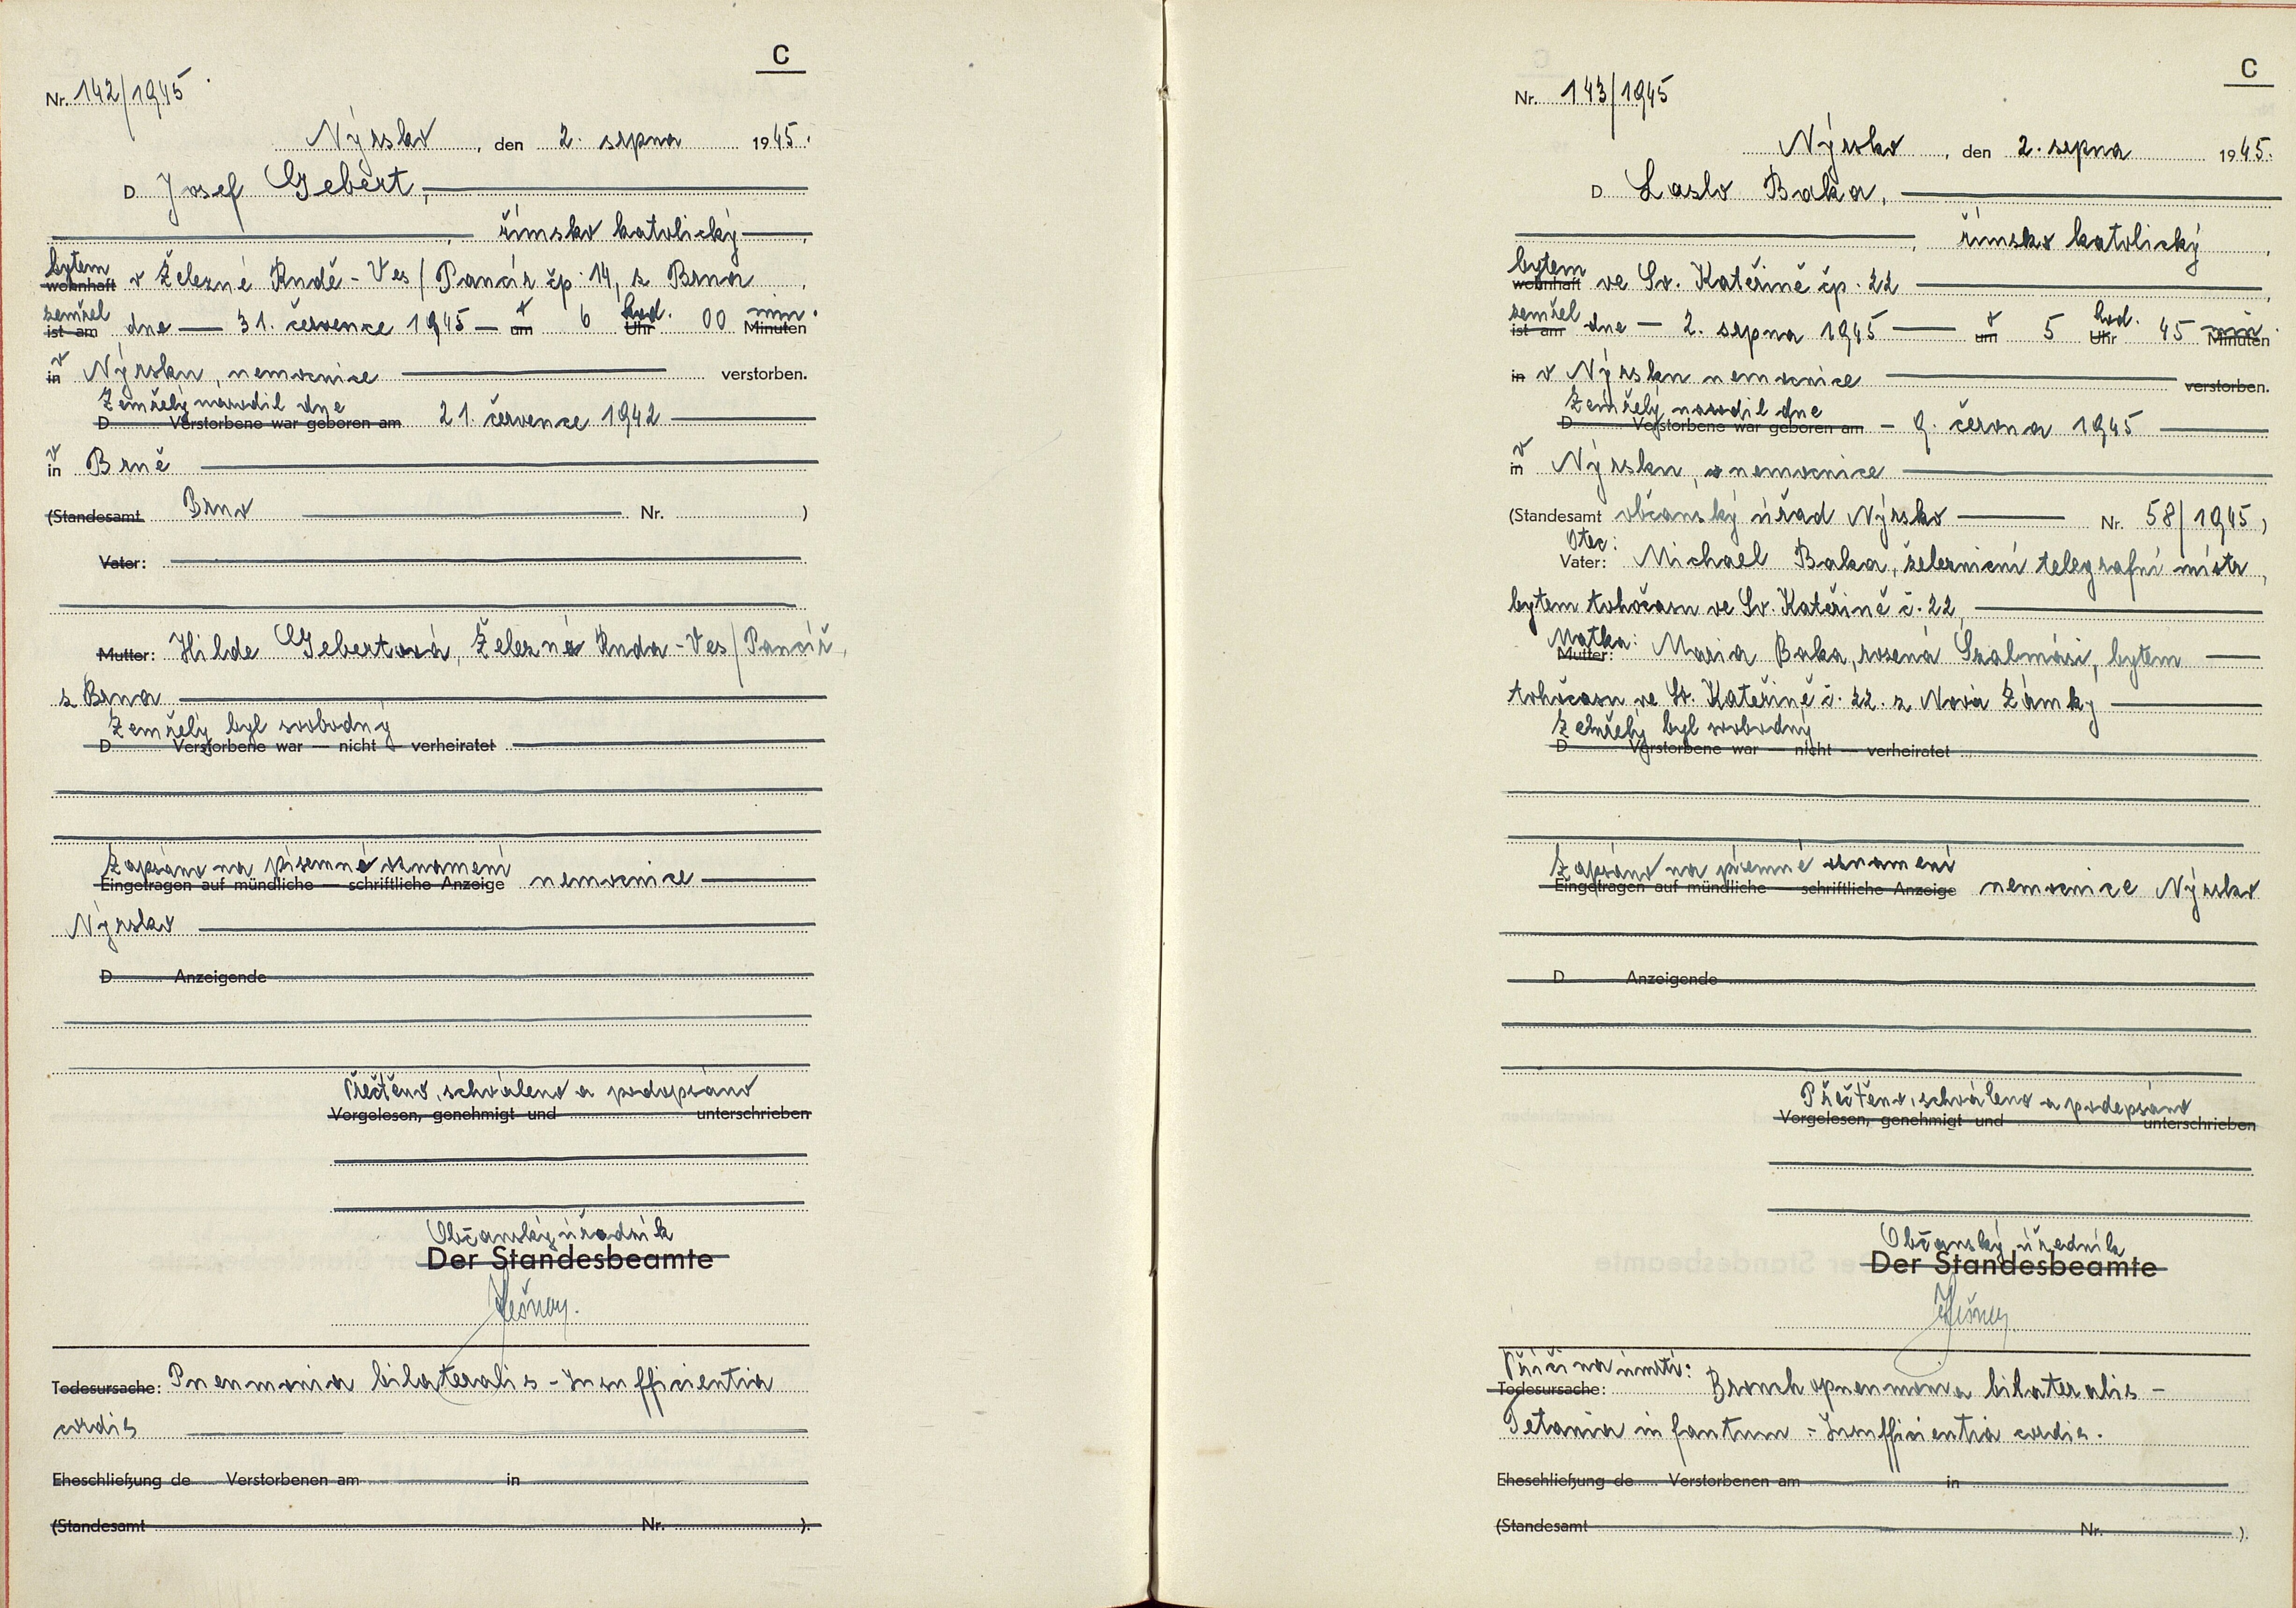 C
Nr. 142/1945
Nýrsko, den 2. srpna 1945.
D Josef Gebert,
římsko katolický
bytem
wohnhaft v Železné Rudě - Ves / Pancíř čp. 14, z Brna
zemřel v hod. min.
ist am dne 31. července 1945 um 6 Uhr 00 Minuten
v
in Nýrsku, nemocnice verstorben.
Zemřelý narodil dne
D Verstorbene war geboren am 21. července 1942
v
in Brně
(Standesamt Brno Nr. )
Vater:
Mutter: Hilde Gebertová, Železná Ruda - Ves / Pancíř,
z Brna
Zemřelý byl svobodný
D Verstorbene war — nicht — verheiratet
Zapsáno na písemné oznamení
Eingetragen auf mündliche — schriftliche Anzeige nemocnice
Nýrsko
D Anzeigende
Přečteno, schváleno a podepsáno
Vorgelesen, genehmigt und unterschrieben
Občanský úřadník
Der Standesbeamte
Todesursache: Pneumonia bilateralis - Insufficientia
cordis
Eheschließung de Verstorbenen am in
(Standesamt Nr. ).
C
Nr. 143/1945
Nýrsko, den 2. srpna 1945.
D Laslo Baka,
římsko katolický,
bytem
wohnhaft ve Sv. Kateřině čp. 22
zemřel v hod. min.
ist am dne — 2. srpna 1945 um 5 Uhr 45 Minuten
in v Nýrsku nemocnice verstorben.
Zemřelý narodil dne
D Verstorbene war geboren am — 9. června 1945
v
in Nýrsku, nemocnice
(Standesamt občanský úřad Nýrsko Nr. 58/1945)
Otec:
Vater: Michael Baka, železniční telegrafní mistr,
bytem tohočasu ve Sv. Kateřině č. 22,
Matka:
Mutter: Maria Baka, rosená Szalmási, bytem
tohočasu ve Sv. Kateřině č. 22. z Nová Zámky
Zemřelý byl svobodný
D Verstorbene war — nicht — verheiratet
Zapsáno na písemné oznamení
Eingetragen auf mündliche — schriftliche Anzeige nemocnice Nýrsko
D Anzeigende
Přečteno, schváleno a podepsáno
Vorgelesen, genehmigt und unterschrieben
Občanský úředník
Der Standesbeamte
Příčina úmrtí:
Todesursache: Bronchopneumonia bilateralis -
Tetania infantum - Insufficientia cordis.
Eheschließung de Verstorbenen am in
(Standesamt Nr. ).